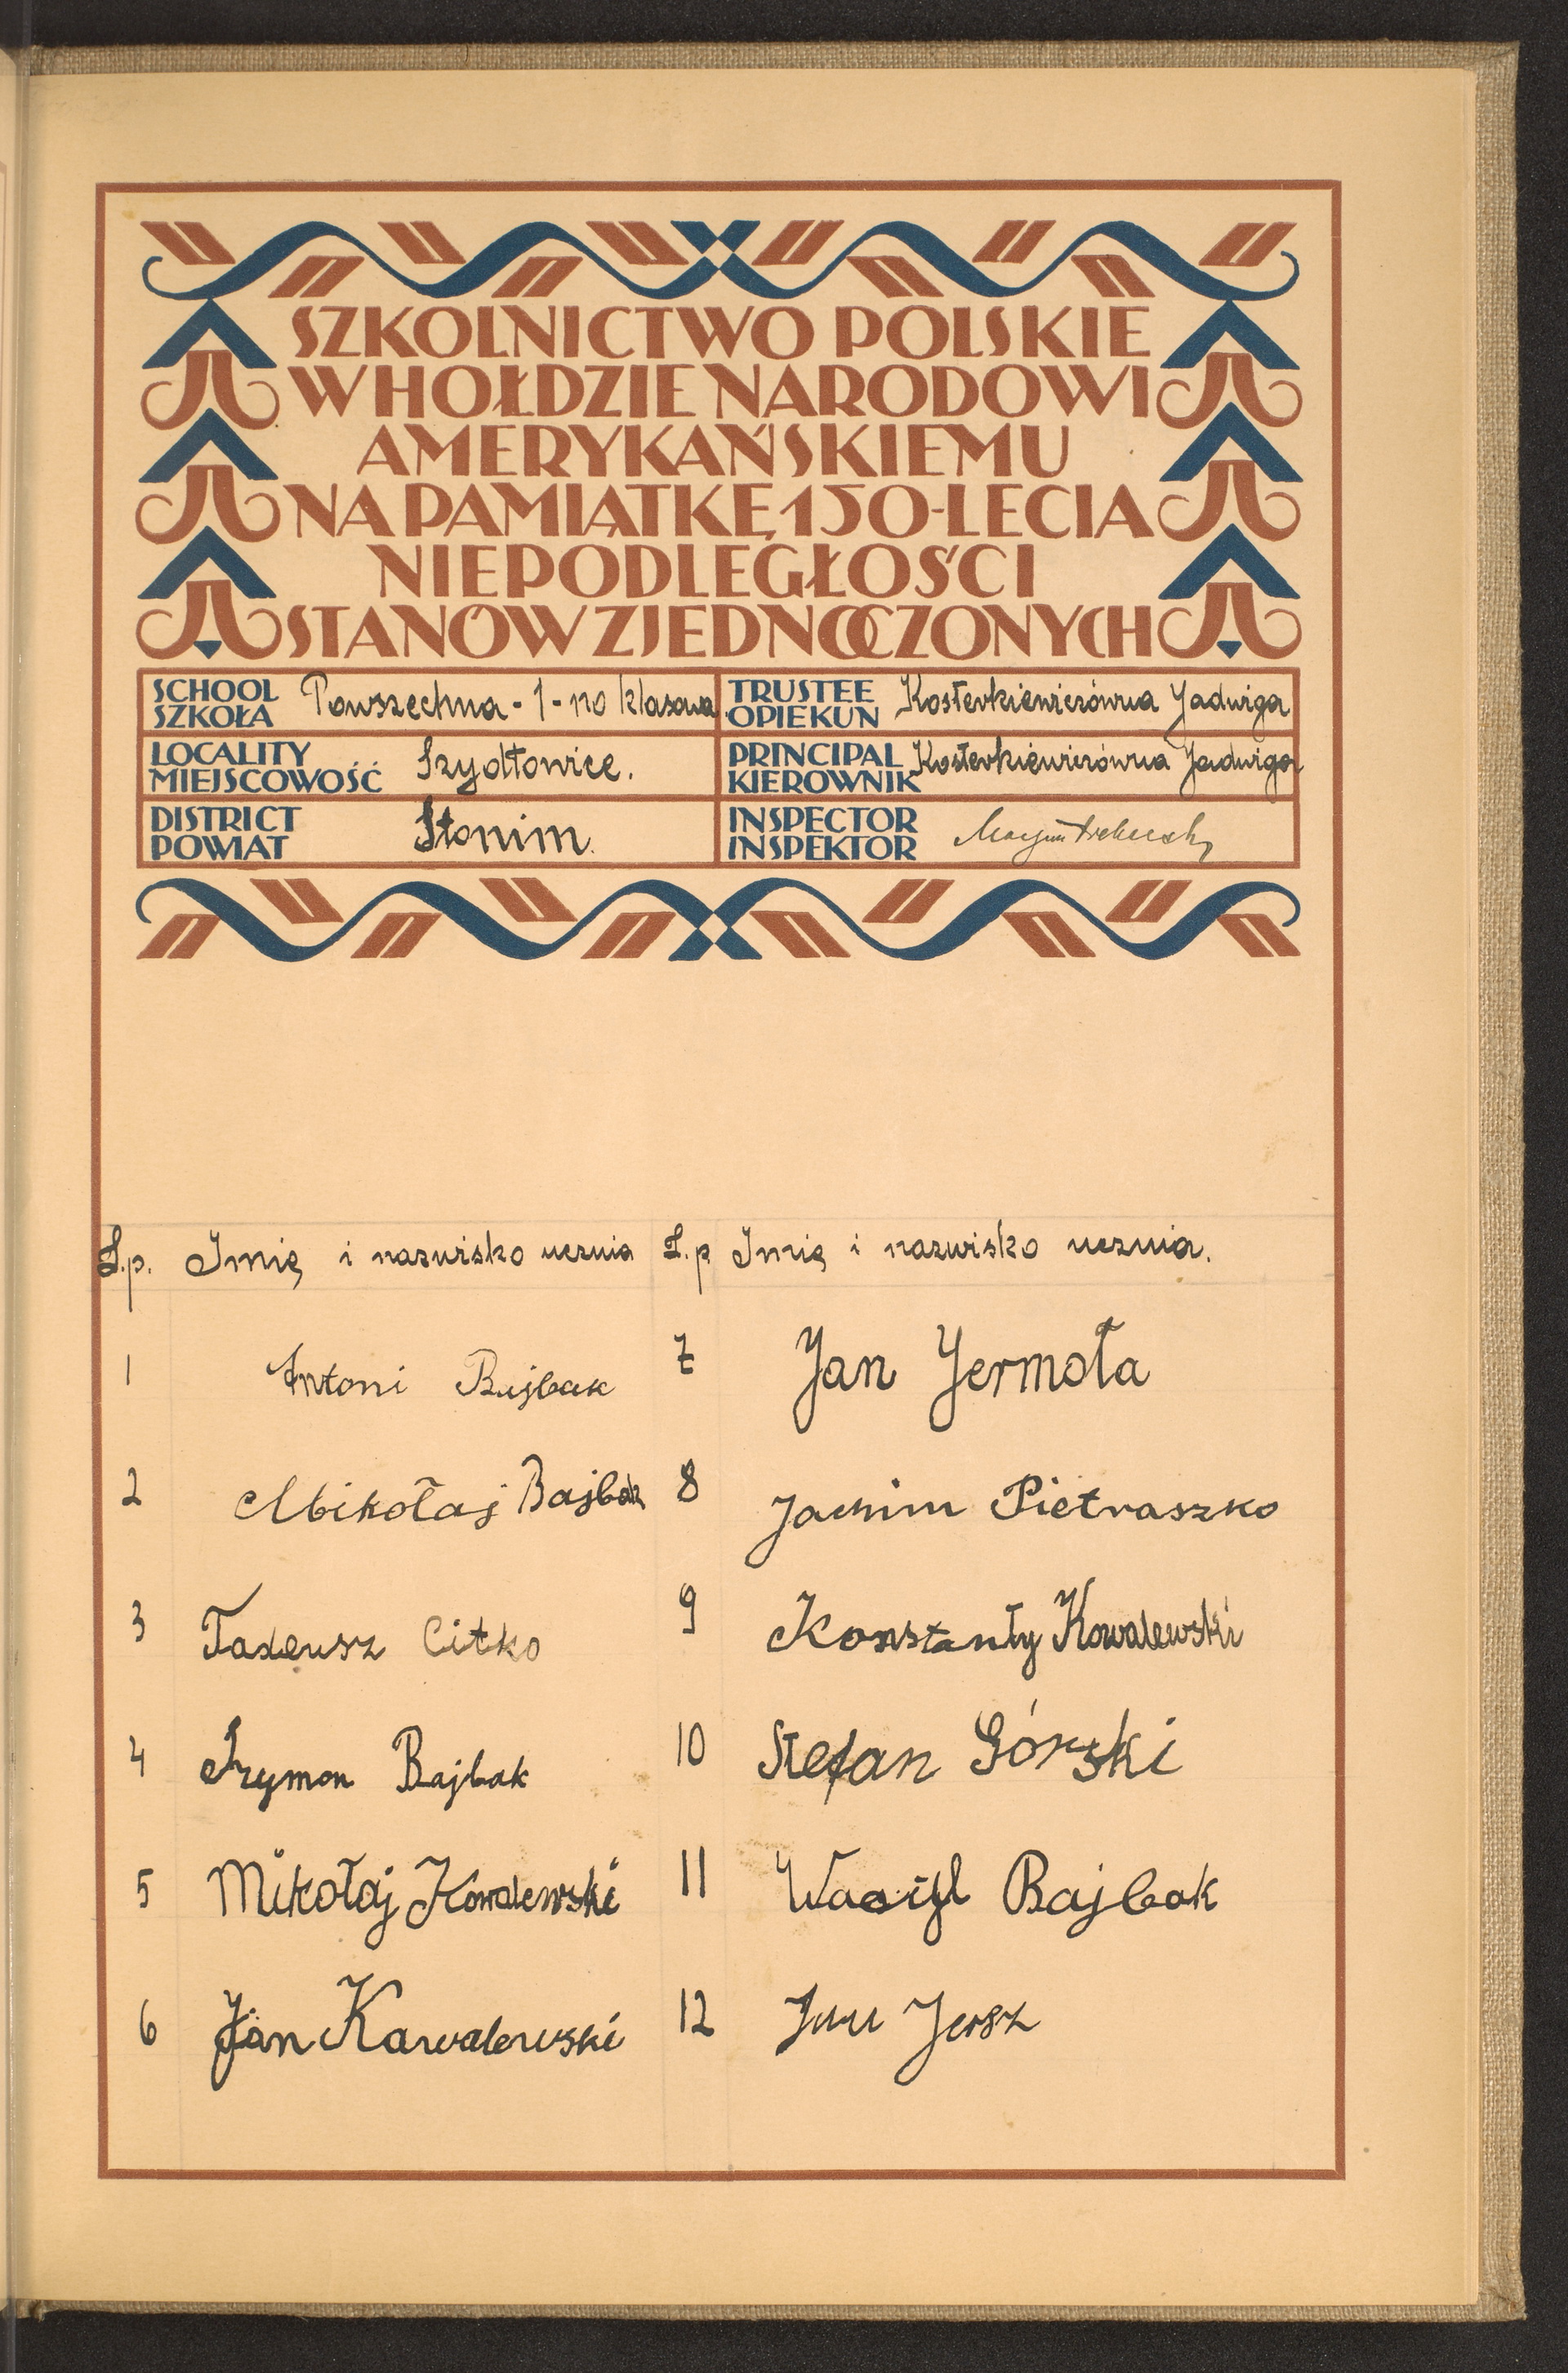 SZKOLNICTWO POLSKIE
W HOŁDZIE NARODOWI
AMERYKAŃSKIEMU
NA PAMIĄTKĘ 150-LECIA
NIEPODLEGŁOŚCI
STANÓW ZJEDNOCZONYCH
SCHOOL SZKOŁA Powszechna - 1 - no klasowa
TRUSTEE OPIEKUN Kosterkiewiczówna Jadwiga
LOCALITY MIEJSCOWOŚĆ Szydłowice.
PRINCIPAL KIEROWNIK Kosterkiewiczówna Jadwiga
DISTRICT POWIAT Słonim.
INSPECTOR INSPEKTOR
L.p. Imię i nazwisko ucznia L.p Imię i nazwisko ucznia.
1 Antoni Bajbak
2 Mikołaj Bajbak
3 Tadeusz Citko
4 Szymon Bajbak
5 Mikołaj Kowalewski
6 Jan Kawalewski
7 Jan Jermoła
8 Jachim Pietraszko
9 Konstanty Kowalewski
10 Stefan Górski
11 Wasiyl Bajbak
12 Jan Jersz